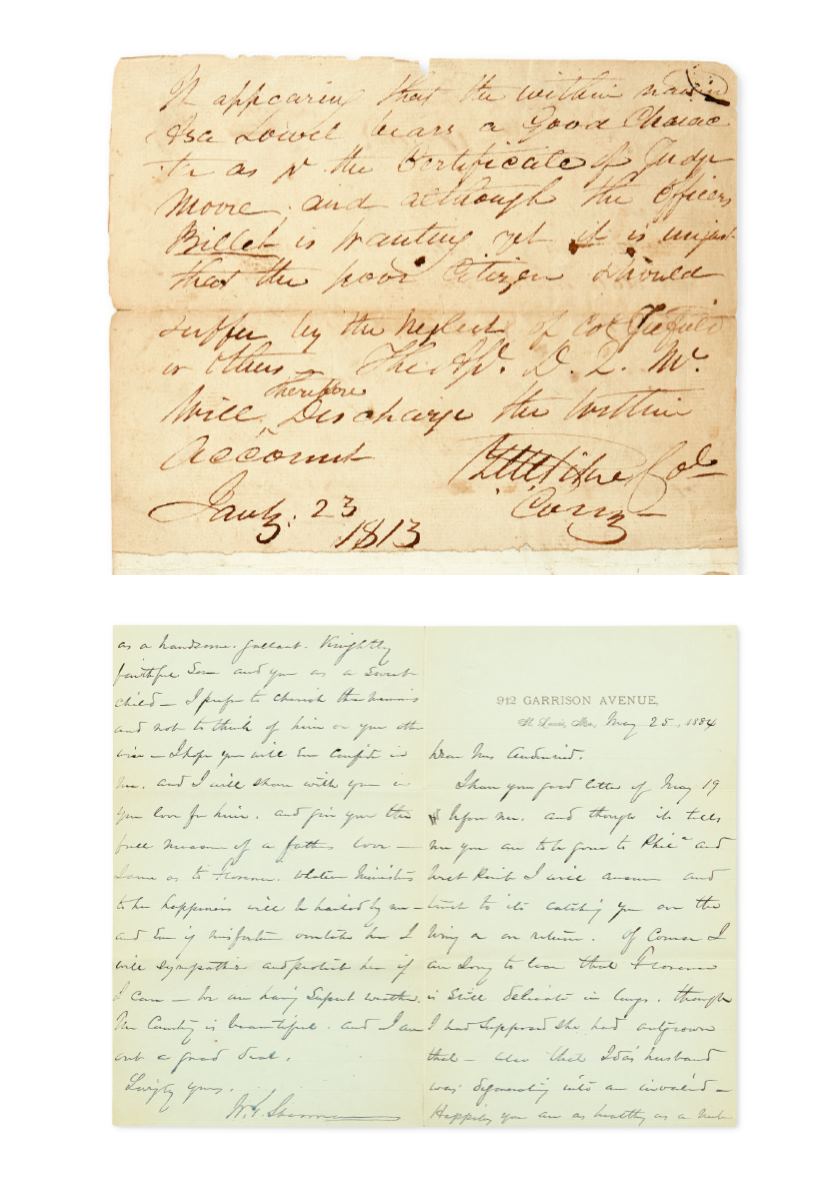 It appearing that the within named
Asa Lowel bears a Good Charac
ter as pr the Certificate of Judge
Moore, and although the Officers
Billet is wanting yet it is unjust
that the poor Citizen should
suffer by the neglect of Col
or others – The D. Q. Mr.
Will therefore Discharge the Within
Account
Col
Jany. 23 Comg
1813
as a handsome. gallant. Knightly
faithful Son and you as a Sweet
child – I prefer to cherish the
and not to think of him or you other
wise – I hope you will Ever Confide in
me. and I will share with you in
your love for him. and give you the
full measure of a fathers love –
Same as to Florence. Whatever Ministers
to her happiness will be hailed by me –
and Even if misfortune overtakes her I
will sympathise and protect her if
I can – We are having Superb weather.
The Country is beautiful. and I am
out a good deal.
yours.
W. T. Sherman
912 GARRISON AVENUE,
St. Louis, Mo., May 25, 1884
Dear Mrs Audenried.
I have your good letter of May 19
before me. and though it tells
me you are to be gone to Phila and
West Point I will answer and
trust to its catching you on the
wing or on return. Of Course I
am Sorry to hear that Florence
is Still delicate in lungs. though
I had Supposed She had outgrown
that – also that Ida's husband
was degenerating into an invalid –
Happily you are as healthy as a